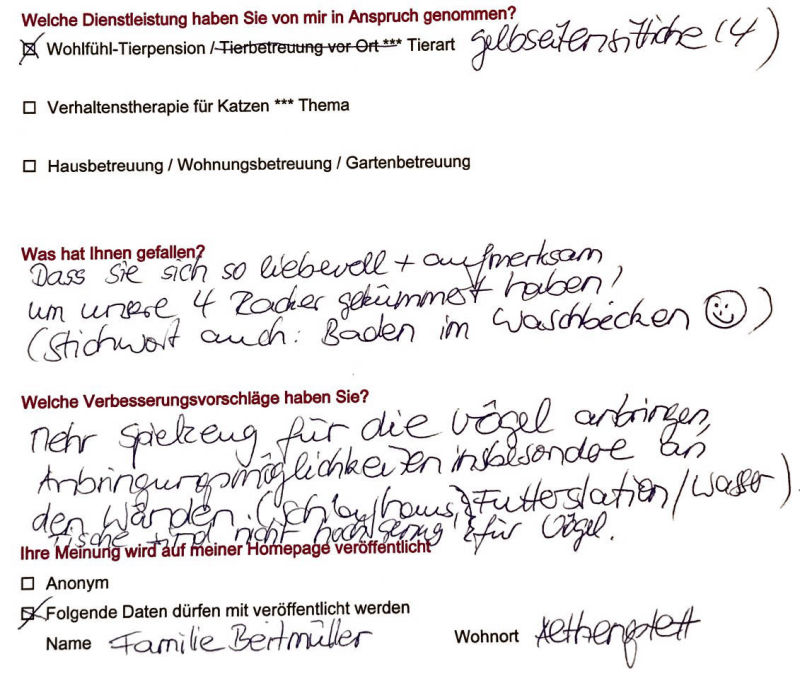 Welche Dienstleistung haben Sie von mir in Anspruch genommen?
☒ Wohlfühl-Tierpension / Tierbetreuung vor Ort *** Tierart Gelbseitensittiche (4)
☐ Verhaltenstherapie für Katzen *** Thema
☐ Hausbetreuung / Wohnungsbetreuung / Gartenbetreuung
Was hat Ihnen gefallen?
Dass Sie sich so liebevoll + aufmerksam
um unsere 4 Racker gekümmert haben!
(Stichwort auch: Baden im Waschbecken ☺)
Welche Verbesserungsvorschläge haben Sie?
Mehr Spielzeug für die Vögel anbringen,
Anbringungsmöglichkeiten insbesondere an
den Wänden. (Schlafhaus, Futterstation/Wasser).
Tische sind nicht hoch genug für Vögel.
Ihre Meinung wird auf meiner Homepage veröffentlicht
☐ Anonym
☒ Folgende Daten dürfen mit veröffentlicht werden
Name Familie Beitmüller Wohnort